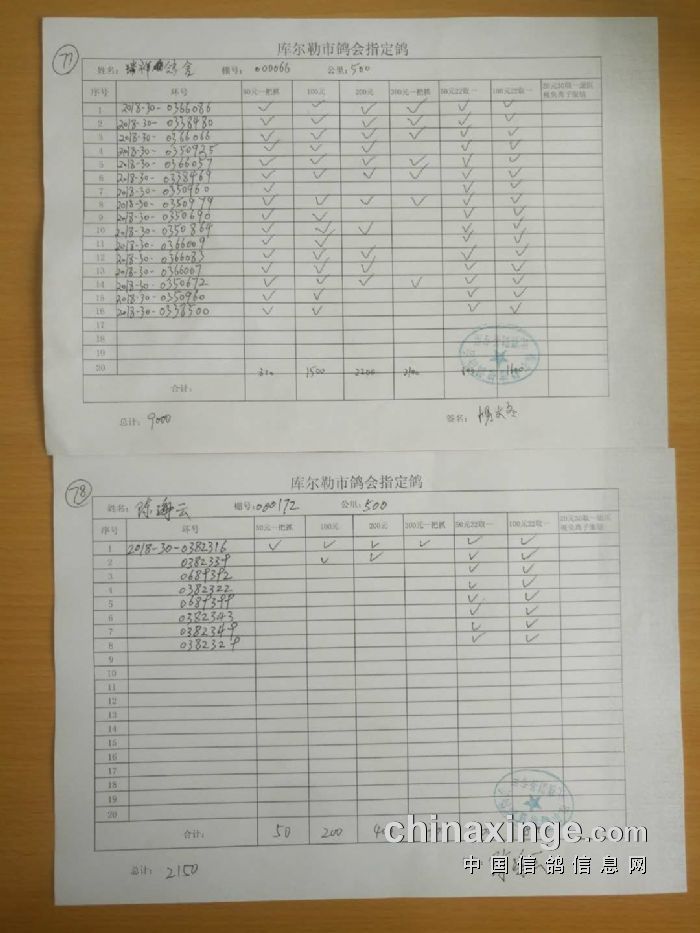 77
库尔勒市鸽会指定鸽
姓名: 瑞祥鸽舍 棚号: 000066 公里: 500
序号 环号 50元一把抓 100元 200元 300元一把抓 50元22取一 100元22取一
1 2018-30-0366086 ✓ ✓ ✓ ✓ ✓ ✓
2 2018-30-0338480 ✓ ✓ ✓ ✓ ✓ ✓
3 2018-30-0366066 ✓ ✓ ✓ ✓ ✓ ✓
4 2018-30-0350925 ✓ ✓ ✓ ✓ ✓
5 2018-30-0366057 ✓ ✓ ✓ ✓ ✓ ✓
6 2018-30-0338469 ✓ ✓ ✓ ✓ ✓ ✓
7 2018-30-0350960 ✓ ✓ ✓
8 2018-30-0350979 ✓ ✓ ✓ ✓ ✓ ✓
9 2018-30-0350690 ✓ ✓ ✓ ✓
10 2018-30-0350864 ✓ ✓ ✓ ✓ ✓
11 2018-30-0366009 ✓ ✓ ✓ ✓
12 2018-30-0366083 ✓ ✓ ✓ ✓ ✓
13 2018-30-0366007 ✓ ✓ ✓ ✓ ✓
14 2018-30-0350672 ✓ ✓ ✓ ✓ ✓ ✓
15 2018-30-0350960 ✓ ✓ ✓ ✓
16 2018-30-0338500 ✓ ✓ ✓ ✓
17
18
19
20
合计: 1500 2200 2100 1600
总计: 9000 签名:
78
库尔勒市鸽会指定鸽
姓名: 陈海云 棚号: 000172 公里: 500
序号 环号 50元一把抓 100元 200元 300元一把抓 50元22取一 100元22取一
1 2018-30-0382316 ✓ ✓ ✓ ✓ ✓ ✓
2 0382339 ✓ ✓ ✓ ✓
3 0689392 ✓ ✓
4 0382322 ✓ ✓
5 0689399 ✓ ✓
6 0382343 ✓ ✓
7 0382349 ✓ ✓
8 0382329 ✓ ✓
9
10
11
12
13
14
15
16
17
18
19
20
合计: 50 200
总计: 2150
chinaxinge.com
中国信鸽信息网